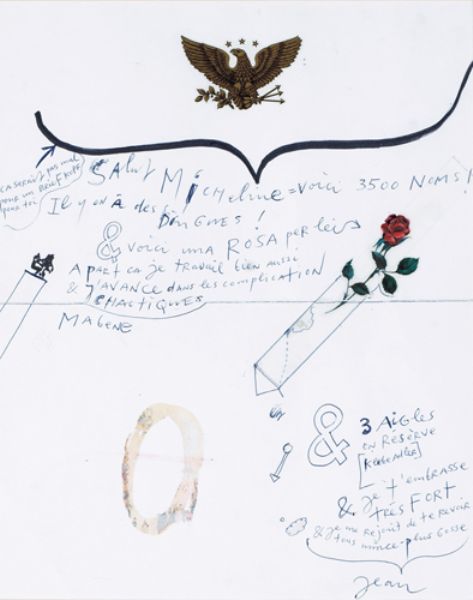 SAlut Micheline = Voici 3500 NOMS
ÇA SERAIT pas mal
pour un BRIEFKOPF
pour toi
Il y en A des
DINGUES !
& voici una ROSA per lei
A part ça je travail bien aussi
& J'AVANCE dans les complication
CHAOTIQUES
MAGENE
& 3 AiGles
en RESÈRVE
[Klebeadler]
& je t'embrasse
TRÉS FORT
& je me rejouit de te revoir
tous mince plus Gosse
Jean